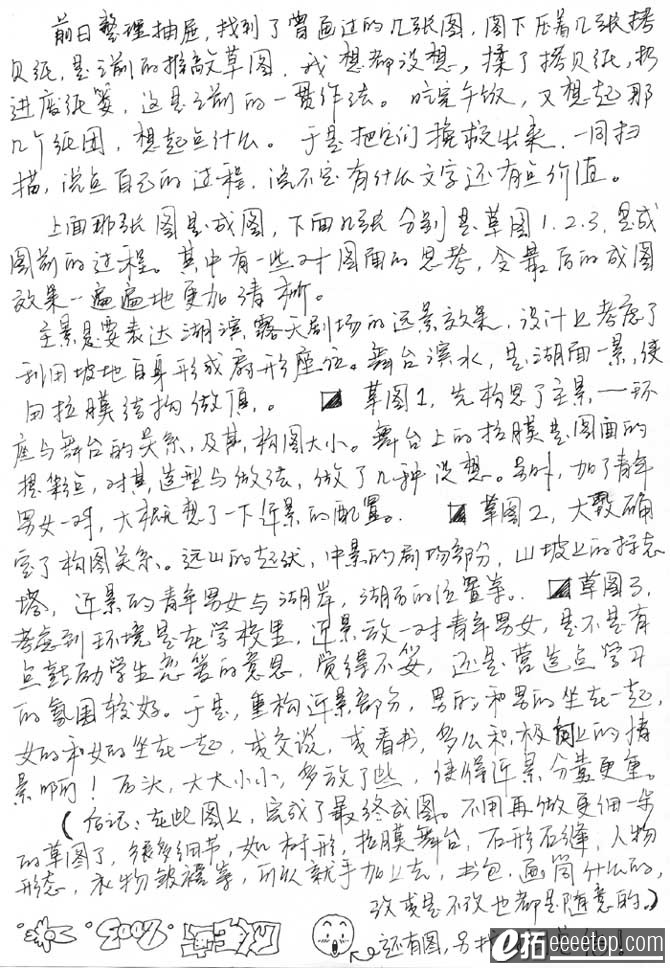 前日整理抽屉,找到了曾画过的几张图,图下压着几张拷
贝纸,是之前的推敲草图。我想都没想,揉了拷贝纸,扔
进废纸篓,这是之前的一贯作法。吃完午饭,又想起那
几个纸团,想起点什么。于是把它们挽救出来,一同扫
描,说点自己的过程,说不定有什么文字还有点价值。
上面那张图是成图,下面几张分别是草图1.2.3,是成
图前的过程。其中有一些对图面的思考,令最后的成图
效果一遍遍地更加清晰。
主景是要表达湖滨露天剧场的远景效果,设计上考虑了
利用坡地自身形成扇形座位。舞台滨水,是湖面一景,使
用拉膜结构做顶。 草图1,先构思了主景,一环
座与舞台的关系,及其构图大小。舞台上的拉膜是图面的
提彩点,对其造型与做法,做了几种设想。另外,加了青年
男女一对,大概想了一下近景的配置。 草图2,大致确
定了构图关系。远山的起伏,中景的剧场部分,山坡上的标志
塔,近景的青年男女与湖岸,湖石的位置等。 草图3,
考虑到环境是在学校里,近景放一对青年男女,是不是有
点鼓励学生恋爱的意思,觉得不妥,还是营造点学习
的氛围较好。于是,重构近景部分,男的和男的坐在一起,
女的和女的坐在一起,或交谈,或看书,多么和极向上的情
景啊!石头,大大小小,多放了些,使得近景分量更重。
(后记:在此图上,完成了最终成图。不用再做更细一步
的草图了,很多细节,如树形,拉膜舞台,石形石缝,人物
形态,衣物皱褶等,可以就手加上去,书包,画筒什么的,
改或是不改也都是随意的。)
2007
还有图,另
e拓 eeeetop.com